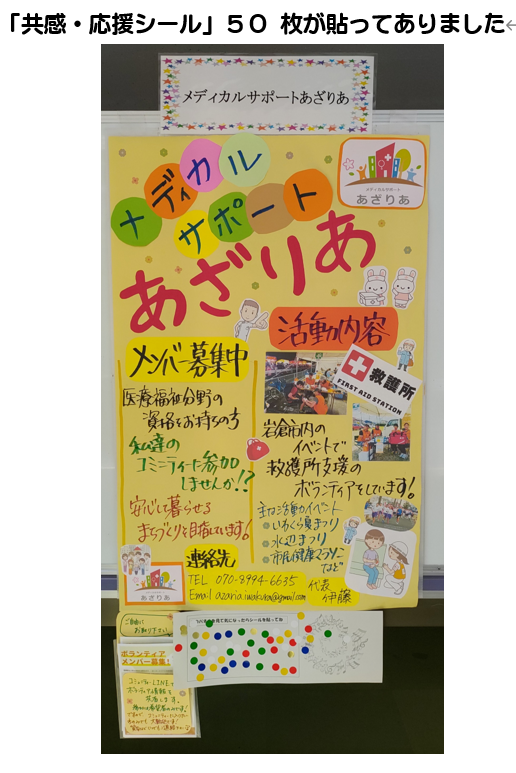 「共感・応援シール」５０ 枚が貼ってありました
メディカルサポートあざりあ
メディカル
サポート
あざりあ
メディカルサポート
あざりあ
活動内容
救護所
FIRST AID STATION
メンバー募集中
医療福祉分野の
資格をお持ちの方
私達の
コミニティーに参加
しませんか!?
安心して暮らせる
まちづくりを目指しています!
岩倉市内の
イベントで
救護所支援の
ボランティアをしています!
主な活動イベント
いわくら夏まつり
水辺まつり
市民健康マラソン
など
連絡先
TEL 070-8994-6635
Email azaria.iwakura@gmail.com
代表
伊藤
あざりあ
ご自由に
お取り下さい
ボランティア
メンバー募集!